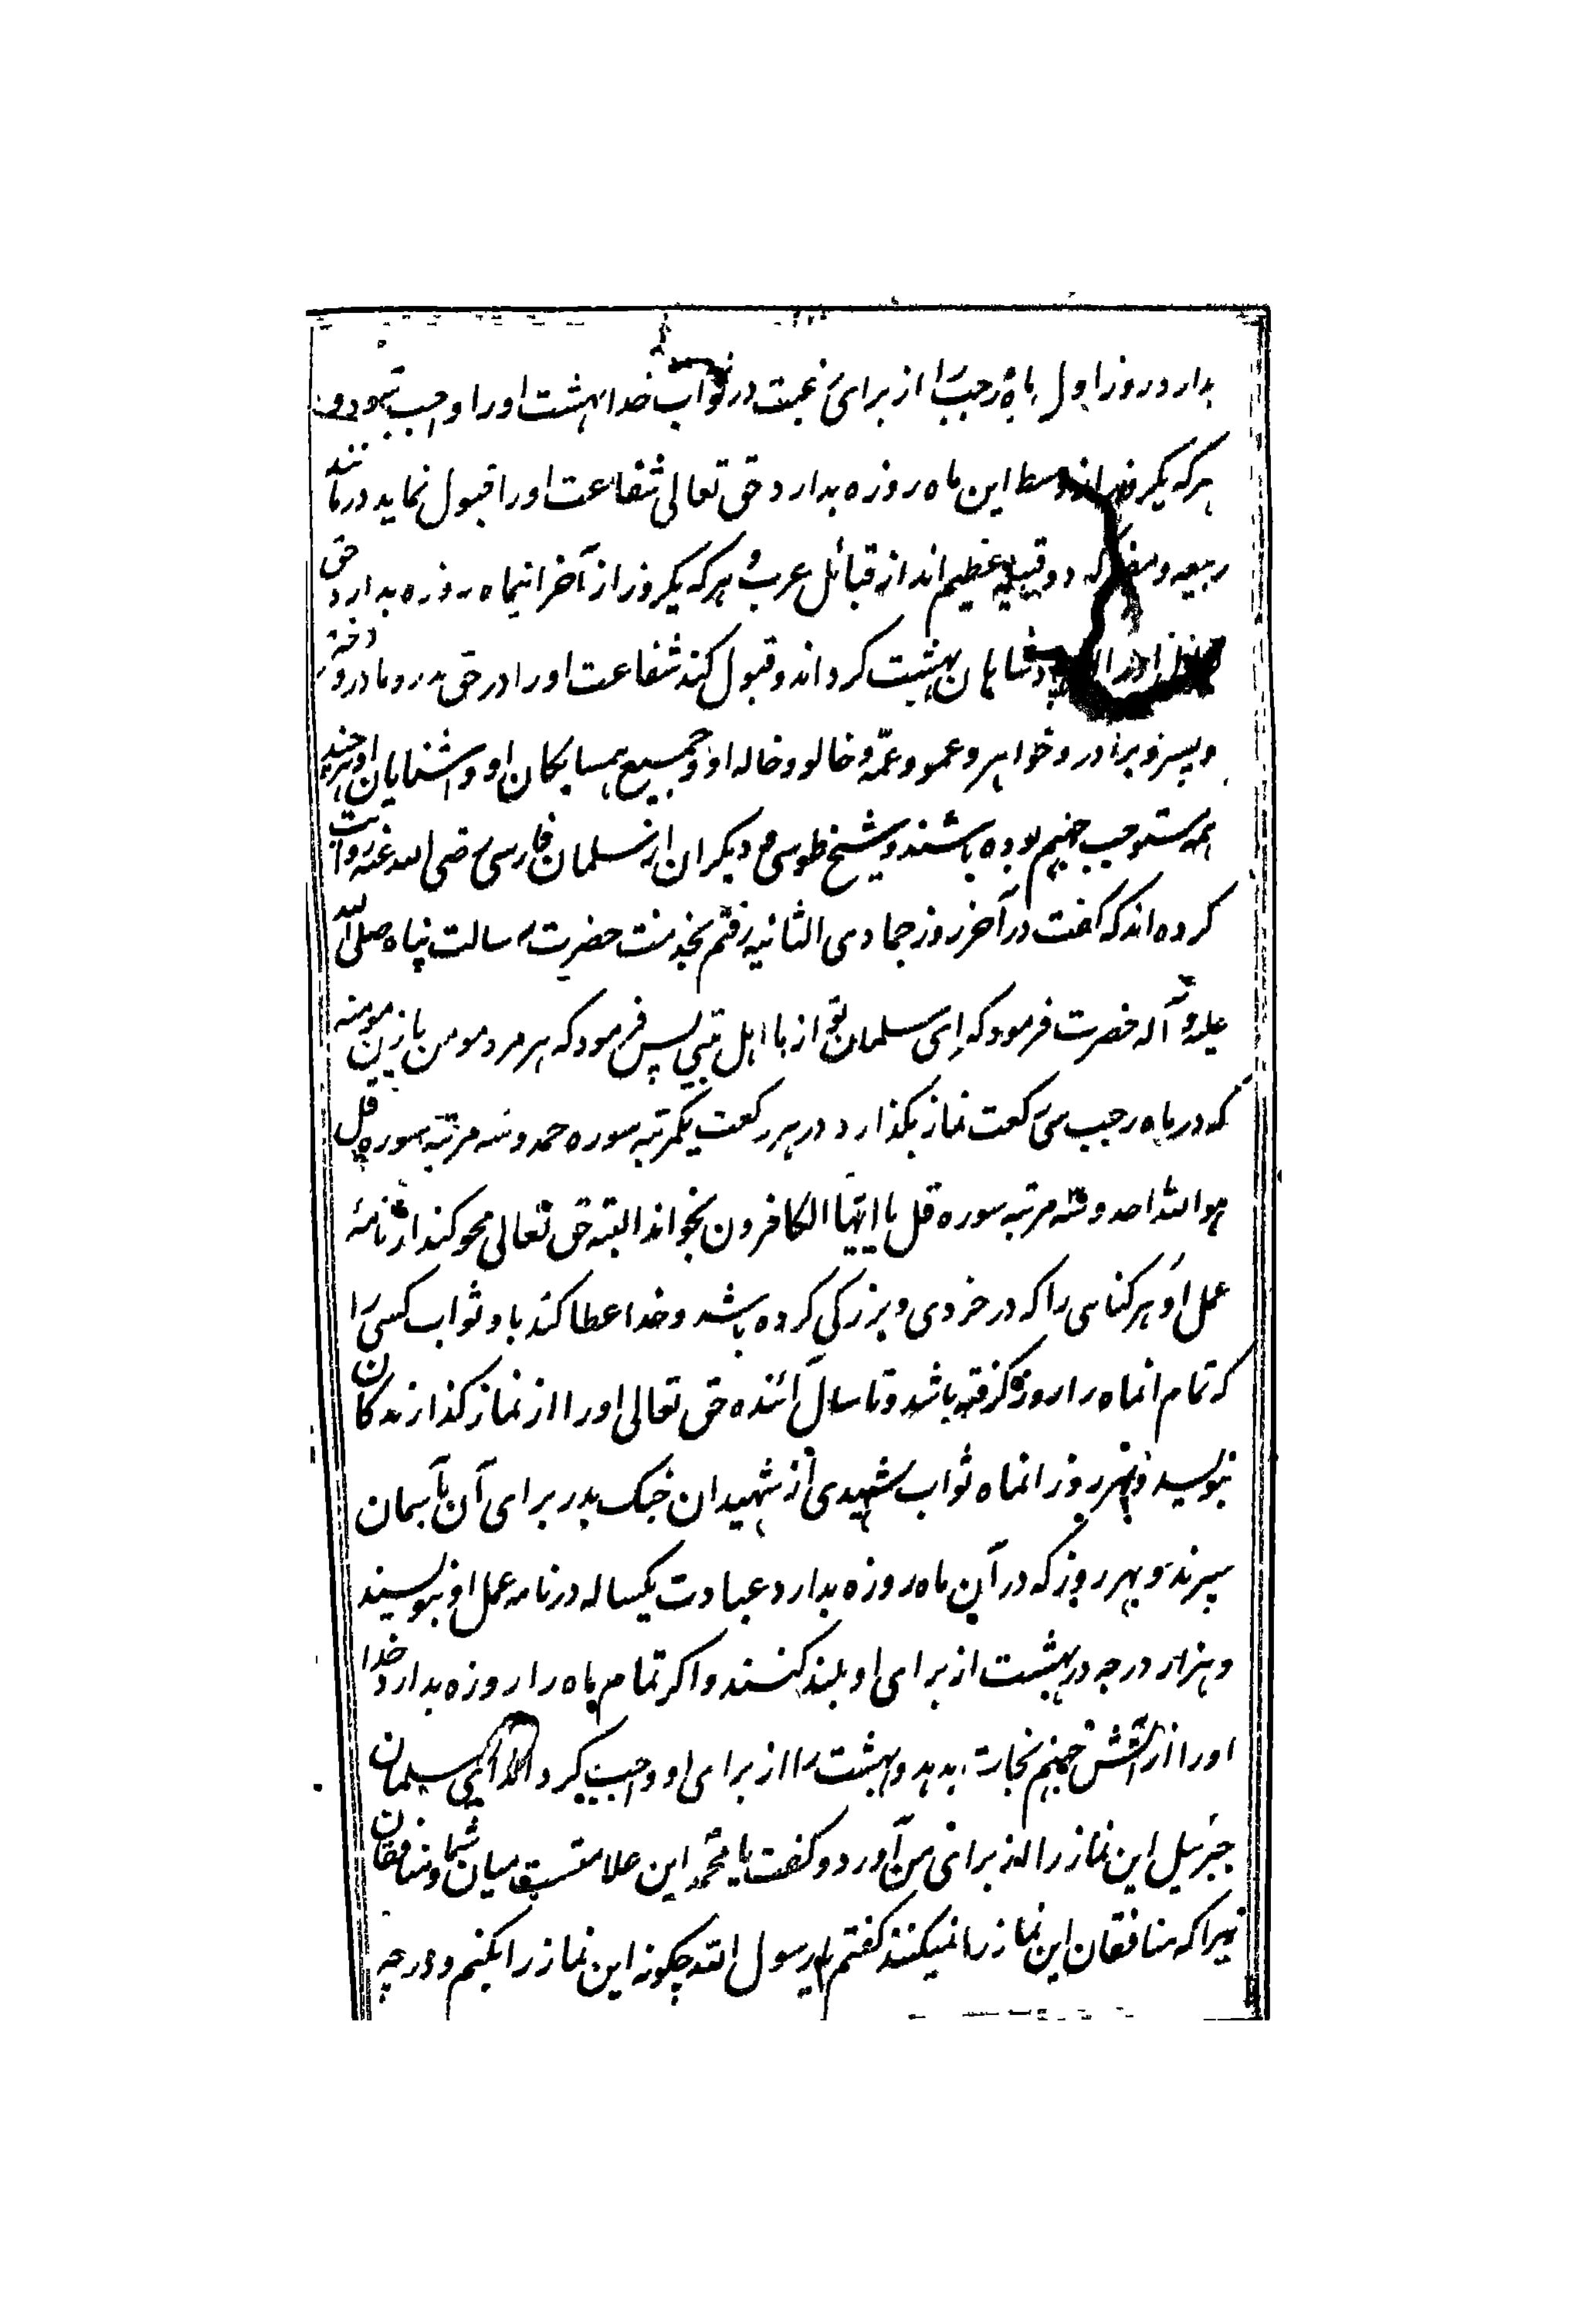 بدارد روز اول ماه رجب را از برای رغبت در ثواب خدا بهشت او را واجب شود و
هرکه یکروز از وسط این ماه روزه بدارد حق تعالی شفاعت او را قبول نماید در مانند
ربیعه و مضر که دو قبیله عظیم اند از قبائل عرب و هرکه یکروز از آخر اینماه روزه بدارد حق
او را از پادشاهان بهشت کرداند و قبول کند شفاعت او را در حق پدر و مادر و دختر
و پسر و برادر و خواهر و عمو و عمّه و خالو و خاله او و جمیع همسایکان او و آشنایان او هرچند
همه مستوجب جهنم بوده باشند و شیخ طوسی و دیکران از سلمان فارسی رضی الله عنه روایت
کرده اند که گفت در آخر روز جمادی الثانیه رفتم بخدمت حضرت رسالت پناه صلی الله
علیه و آله حضرت فرمود که ای سلمان تو از ما اهل بیتی پس فرمود که هر مرد مومن یا زن مومنه
که در ماه رجب سی رکعت نماز بکذارد در هر رکعت یکمرتبه سوره حمد و سه مرتبه سوره قل
هو الله احد و سه مرتبه سوره قل یا ایّها الکافرون بخواند البته حق تعالی محو کند از نامۀ
عمل او هر کناهی را که در خردی و بزرکی کرده باشد و خدا عطا کند باو ثواب کسی را
که تمام انماه را روزه کرفته باشد و تا سال آئنده حق تعالی او را از نماز کذارندکان
بنویسد و بهر روز انماه ثواب شهیدی از شهیدان جنک بدر برای آن بآسمان
ببرند و بهر روز که در آن ماه روزه بدارد عبادت یکساله در نامه عمل او بنویسند
و هزار درجه در بهشت از برای او بلند کنند و اکر تمام ماه را روزه بدارد خدا
او را از آتش جهنم نجات بدهد و بهشت را از برای او واجب کرداند ای سلمان
جبرئیل این نماز را از برای من آورد و کفت یا محمد این علامتست میان شما و منافقان
زیرا که منافقان این نماز را نمیکنند کفتم یا رسول الله چکونه این نماز را بکنم و در چه